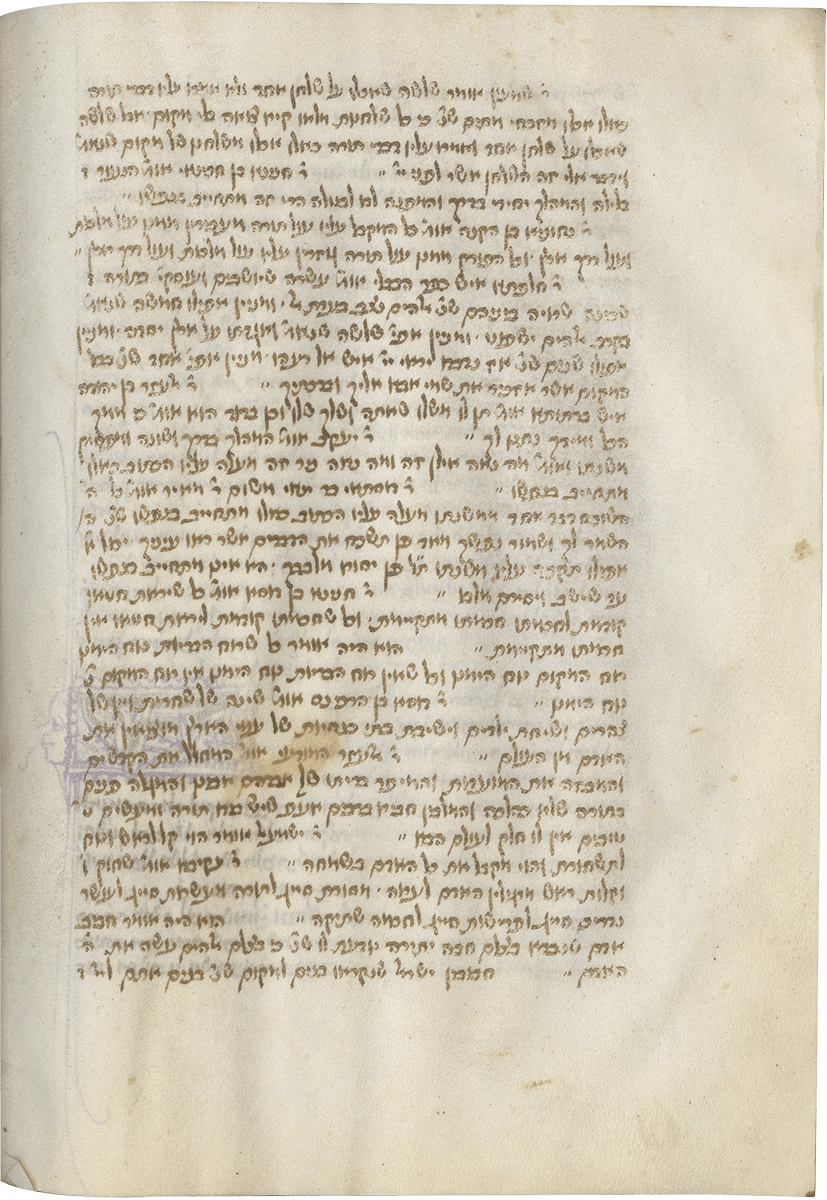 ר׳ שמעון אומר שלשה שאכלו על שלחן אחד ולא אמרו עליו דברי תורה
כאלו אכלו מזבחי מתים שנ׳ כי כל שלחנות מלאו קיא צואה בלי מקום אבל שלשה
שאכלו על שלחן אחד ואמרו עליו דברי תורה כאלו אכלו משלחנו של מקום שנאמ׳
וידבר אלי זה השלחן אשר לפני יי׳ ״ ר׳ חנינא בן חכינאי אומ׳ הנעור ב
בלילה והמהלך יחידי בדרך והמפנה לבו לבטלה הרי זה מתחייב בנפשו ״
ר׳ נחוניא בן הקנה אומ׳ כל המקבל עליו עול תורה מעבירין ממנו עול מלכות
ועול דרך ארץ וכל הפורק ממנו עול תורה נותנין עליו עול מלכות ועול דרך ארץ ״
ר׳ חלפתא איש כפר חנניי׳ אומ׳ עשרה שיושבים ועוסקי׳ בתורה
שכינה שרויה ביניהם שנ׳ אלהים נצב בעדת אל ומניין אפילו חמשה שנאמ׳
בקרב אלהים ישפוט ומניין אפי׳ שלשה שנאמ׳ ואגדתו על ארץ יסדה ומניין
אפילו שנים שנ׳ אז נדברו יראי יי׳ איש אל רעהו ומניין אפי׳ אחד שנ׳ בכל
המקום אשר אזכיר את שמי אבא אליך וברכתיך ״ ר׳ אלעזר בן יהודה
איש ברתותא אומ׳ תן לו משלו שאתה ושלך שלו וכן בדוד הוא אומ׳ כי ממך
הכל ומידך נתנו לך ״ ר׳ יעקב אומ׳ המהלך בדרך ושונה ומפסיק
משנתו ואומ׳ מה נאה אילן זה ומה נאה ניר זה מעלה עליו הכתוב כאלו
מתחייב בנפשו ״ ר׳ דוסתאי בר ינאי משום ר׳ מאיר אומ׳ כל ה
השוכח דבר אחד ממשנתו מעלה עליו הכתוב כאלו מתחייב בנפשו שנ׳
השמר לך ושמור נפשך מאד פן תשכח את הדברים אשר ראו עיניך יכול
אפילו תקפה עליו משנתו ת״ל פן יסורו מלבבך הא אינו מתחייב בנפשו
עד שישב ויסירם מלבו ״ ר׳ חנינא בן דוסא אומ׳ כל שיראת חטאו
קודמת לחכמתו חכמתו מתקיימת וכל שחכמתו קודמת ליראת חטאו אין
חכמתו מתקיימת ״ הוא היה אומר כל שרוח הבריות נוחה הימנו
רוח המקום נוחה הימנו וכל שאין רוח הבריות נוחה הימנו אין רוח המקום
נוחה הימנו ״ ר׳ דוסא בן הרכינס אומ׳ שינה של שחרית ויין של
צהרים ושיחת ילדים וישיבת בתי כנסיות של עמי הארץ מוציאין את
האדם מן העולם ״ ר׳ אלעזר המודעי אומ׳ המחלל את הקדשים
והמבזה את המועדות והמיפר בריתו של אברהם אבינו והמגלה פנים
בתורה שלא כהלכה והמלבין פני חבירו ברבים אף על פי שיש בידו תורה ומעשים
טובים אין לו חלק לעולם הבא ״ ר׳ ישמעאל אומר הוי קל לראש ונוח
לתשחורת והוי מקבל את כל האדם בשמחה ״ ר׳ עקיבא אומ׳ שחוק
וקלות ראש מרגילין האדם לערוה מסורת סייג לתורה מעשרות סייג לעושר
נדרים סייג לפרישות סייג לחכמה שתיקה ״ הוא היה אומר חביב
אדם שנברא בצלם חבה יתירה נודעת לו שנ׳ כי בצלם אלהים עשה את
האדם ״ חביבין ישראל שנקראו בנים למקום שנ׳ בנים אתם ליי׳